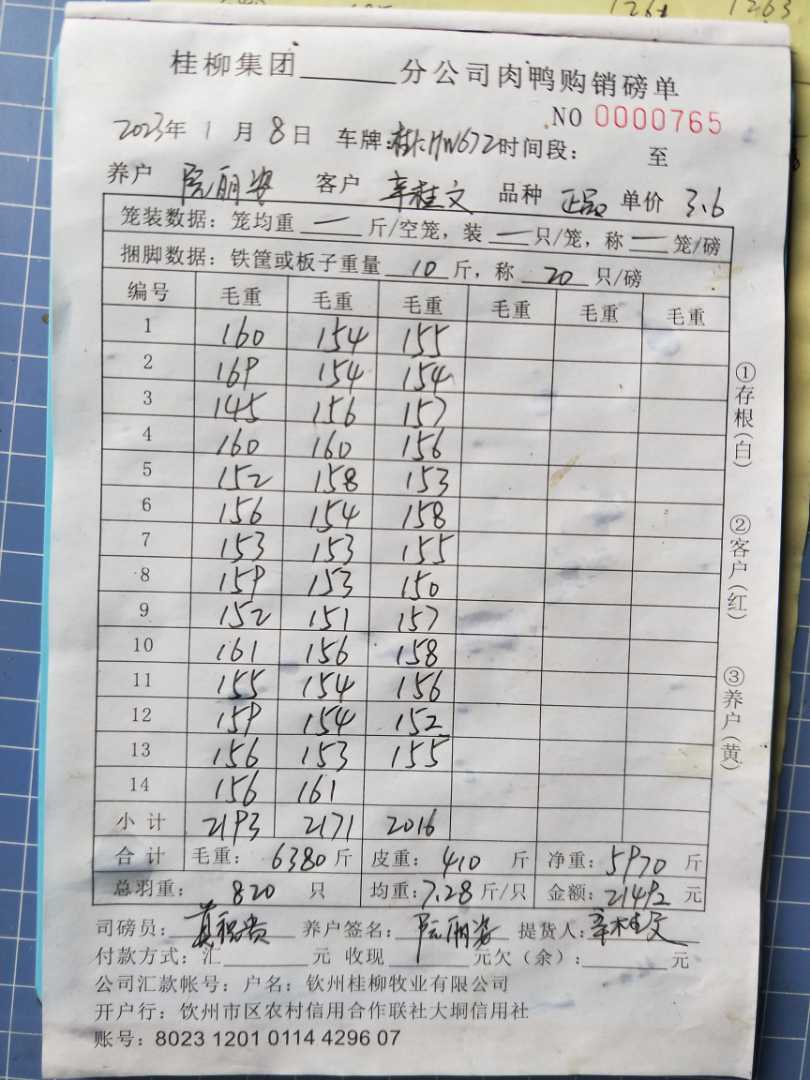 1261 1263
桂柳集团______分公司肉鸭购销磅单
NO 0000765
2023年 1 月 8 日 车牌:桂KHW672时间段: 至
养户 阮丽姿 客户 辛桂文 品种 正品 单价 3.6
笼装数据:笼均重 一 斤/空笼,装 一 只/笼,称 一 笼/磅
捆脚数据:铁筐或板子重量 10 斤,称 20 只/磅
编号 毛重 毛重 毛重 毛重 毛重 毛重
1 160 154 155
2 169 154 154
3 145 156 157
4 160 160 156
5 152 158 153
6 156 154 158
7 153 153 155
8 159 153 150
9 152 151 157
10 161 156 158
11 155 154 156
12 159 154 152
13 156 153 155
14 156 161
小计 2193 2171 2016
合计 毛重: 6380 斤 皮重: 410 斤 净重: 5970 斤
总羽重: 820 只 均重: 7.28 斤/只 金额: 21492 元
司磅员: 养户签名: 阮丽姿 提货人: 辛桂文
付款方式:汇______元 收现______元欠(余):______元
公司汇款帐号:户名:钦州桂柳牧业有限公司
开户行:钦州市区农村信用合作联社大垌信用社
账号:8023 1201 0114 4296 07
①存根(白)
②客户(红)
③养户(黄)